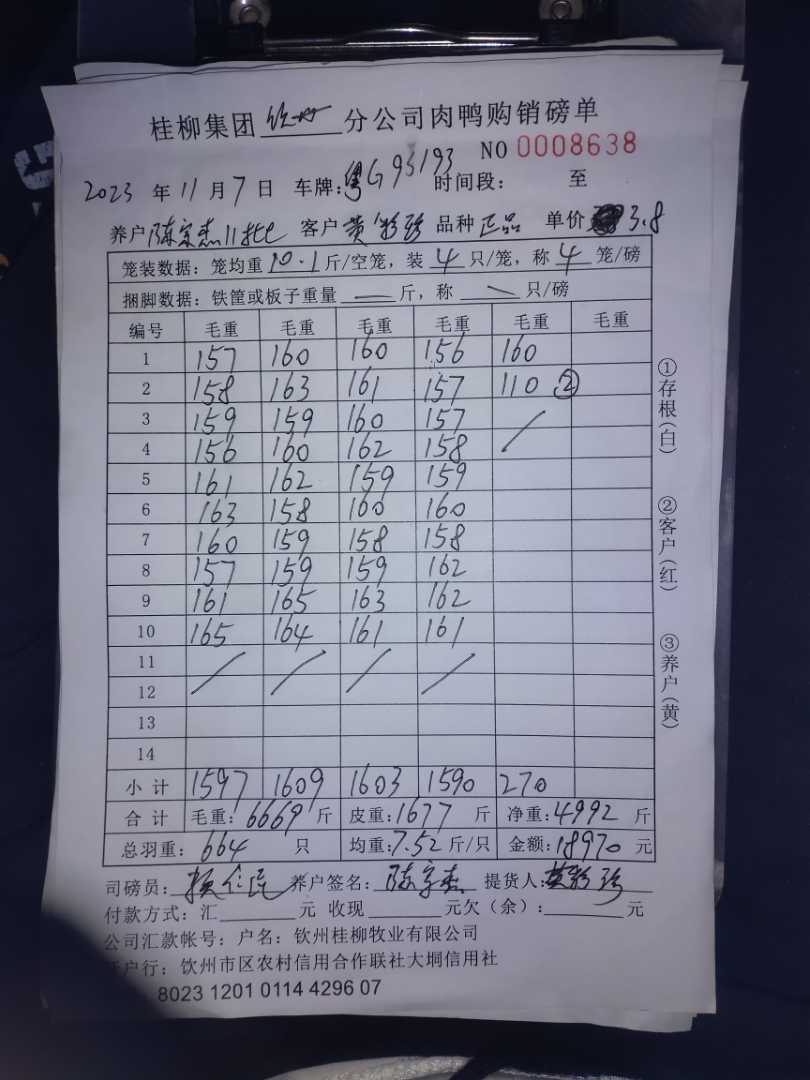 桂柳集团 钦州 分公司肉鸭购销磅单
NO 0008638
2023 年 11 月 7 日 车牌: 粤G93193 时间段: 至
养户 陈家杰11批 客户 黄彩珍 品种 正品 单价 3.8
笼装数据: 笼均重 10.1 斤/空笼, 装 4 只/笼, 称 4 笼/磅
捆脚数据: 铁筐或板子重量 — 斤, 称 — 只/磅
编号 毛重 毛重 毛重 毛重 毛重 毛重
1 157 160 160 156 160
2 158 163 161 157 110 ②
3 159 159 160 157 /
4 156 160 162 158
5 161 162 159 159
6 163 158 160 160
7 160 159 158 158
8 157 159 159 162
9 161 165 163 162
10 165 164 161 161
11 / / / /
12
13
14
小计 1597 1609 1603 1590 270
合计 毛重: 6669 斤 皮重: 1677 斤 净重: 4992 斤
总羽重: 664 只 均重: 7.52 斤/只 金额: 18970 元
司磅员: 养户签名: 陈家杰 提货人: 黄彩珍
付款方式: 汇 元 收现 元欠(余): 元
公司汇款帐号: 户名: 钦州桂柳牧业有限公司
开户行: 钦州市区农村信用合作联社大垌信用社
8023 1201 0114 4296 07
①存根(白)
②客户(红)
③养户(黄)